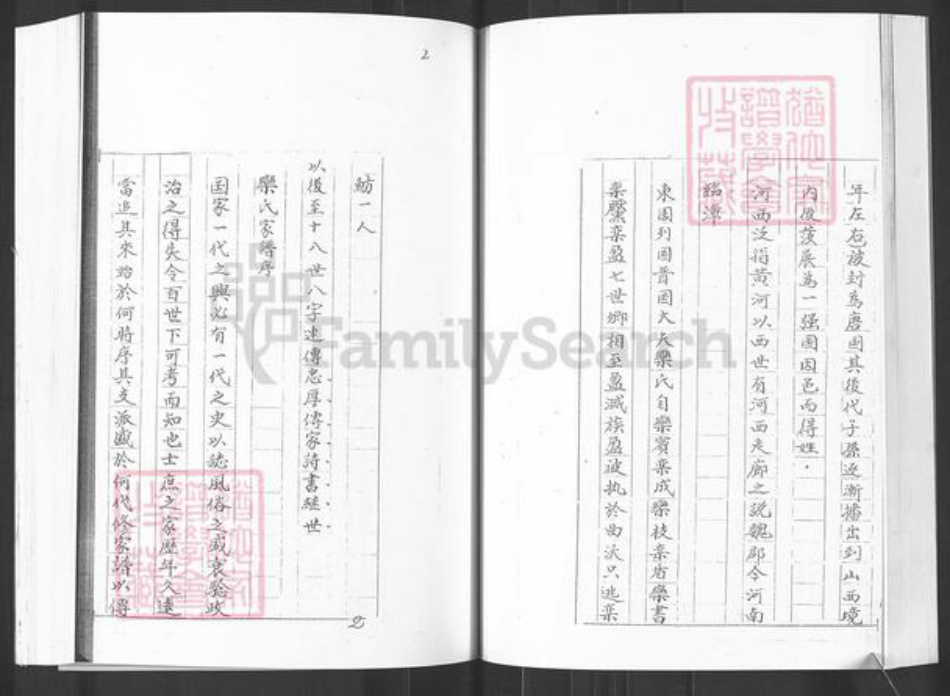 年左右被封為唐國其後代子孫逐漸播出到山西境
內後發展為一强國因邑而得姓．
河西泛指黃河以西世有河西走廊之説魏郡今河南
臨漳
東周列國晋國大夫欒氏自欒賓欒成欒枝欒盾欒書
欒黶欒盈七世卿相至盈滅族盈被执於曲沃只逃欒
魴一人
以後至十八世八字连傳忠厚傳家詩書繼世
欒氏家譜序
国家一代之興必有一代之史以誌風俗之盛衰騐政
治之得失令百世下可考而知也士庶之家歷年久遠
當追其來始於何時序其支派盛於何代修家譜以傳
2
2
FamilySearch